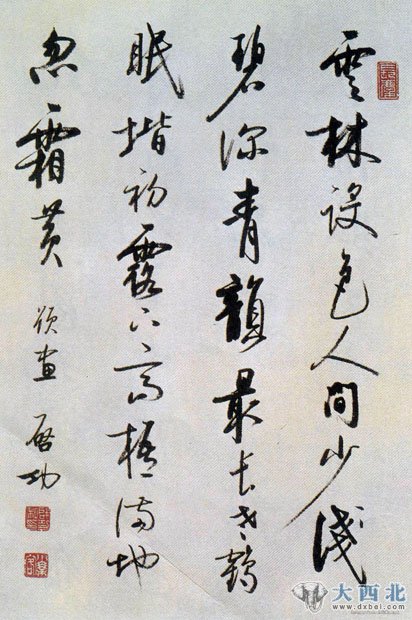 雲林設色人間少淺
碧深青韻最長老鶴
眠堦初露下高梧滿地
忽霜黃 題畫 啓功
大西北
www.dxbei.com